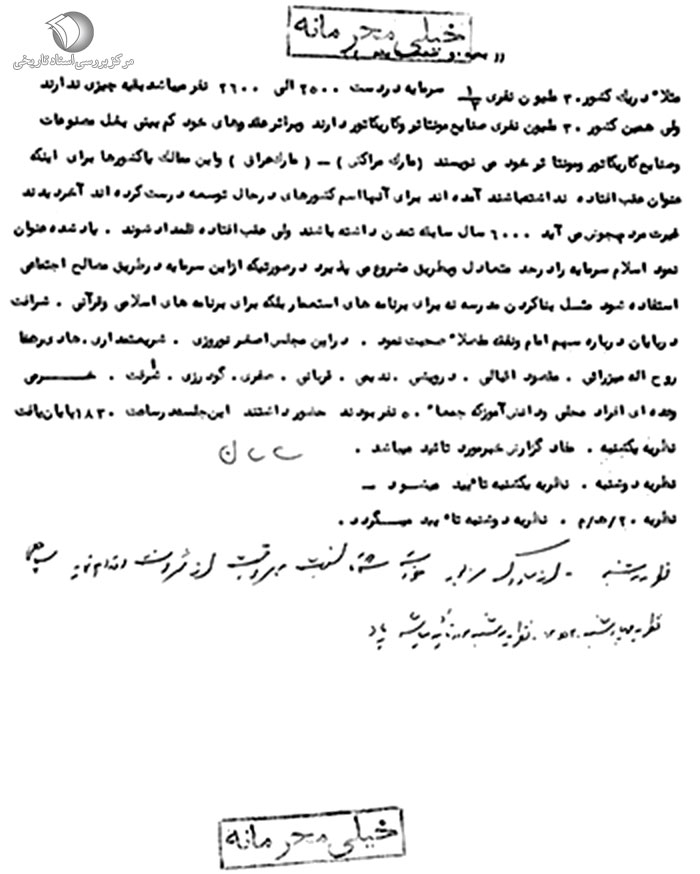 خیلی محرمانه
مرکز بررسی اسناد تاریخی
مثلا" در یک کشور ۳۰ ملیون نفری ۱/۳ سرمایه در دست ۲۵۰۰ الی ۲۶۰۰ نفر میباشد بقیه چیزی ندارند
ولی همین کشور ۳۰ ملیون نفری صنایع مونتاژ و کاریکاتور دارند وبر اثر عقده های خود کم بینی بغل مصنوعات
وصنایع کاریکاتور ومونتاژ خود می نویسند (مارک مراکش) – (مارک عراق) واین ممالک یا کشورها برای اینکه
عنوان عقب افتاده نداشته باشند آمده اند برای آنها اسم کشورهای در حال توسعه درست کرده اند آخر دیدند
غیرت مردم بجوش می آید ۶۰۰۰ سال سابقه تمدن داشته باشند ولی عقب افتاده قلمداد شوند . یاد شده عنوان
نمود اسلام سرمایه را در حد متعادل وبطریق مشروع می پذیرد در صورتیکه از این سرمایه در طریق مصالح اجتماعی
استفاده شود مثل بنا کردن مدرسه نه برای برنامه های استعمار بلکه برای برنامه های اسلامی وقرآنی . شرافت
در پایان درباره سهم امام ونفقه مفصلا" صحبت نمود . در این مجلس اصغر نوروزی . شریعتمداری . هادی
روح اله میرزائی . مقصود اقبالی . درویش . ندیمی . قربانی . صفری . گودرزی . شرفت . خرمی
وعده ای افراد محلی ودانش آموز که جمعا" ۵۰ نفر بودند حضور داشتند این جلسه در ساعت ۱۸۳۰ پایان یافت
نظریه یکشنبه . مفاد گزارش خبر مورد تائید میباشد .
نظریه دوشنبه . نظریه یکشنبه تائید میشود –
نظریه ۲۰/ه/م . نظریه دوشنبه تائید میگردد .
نظریه سه شنبه -
نظریه چهارشنبه . نظریه سه شنبه مورد تائید میباشد
خیلی محرمانه